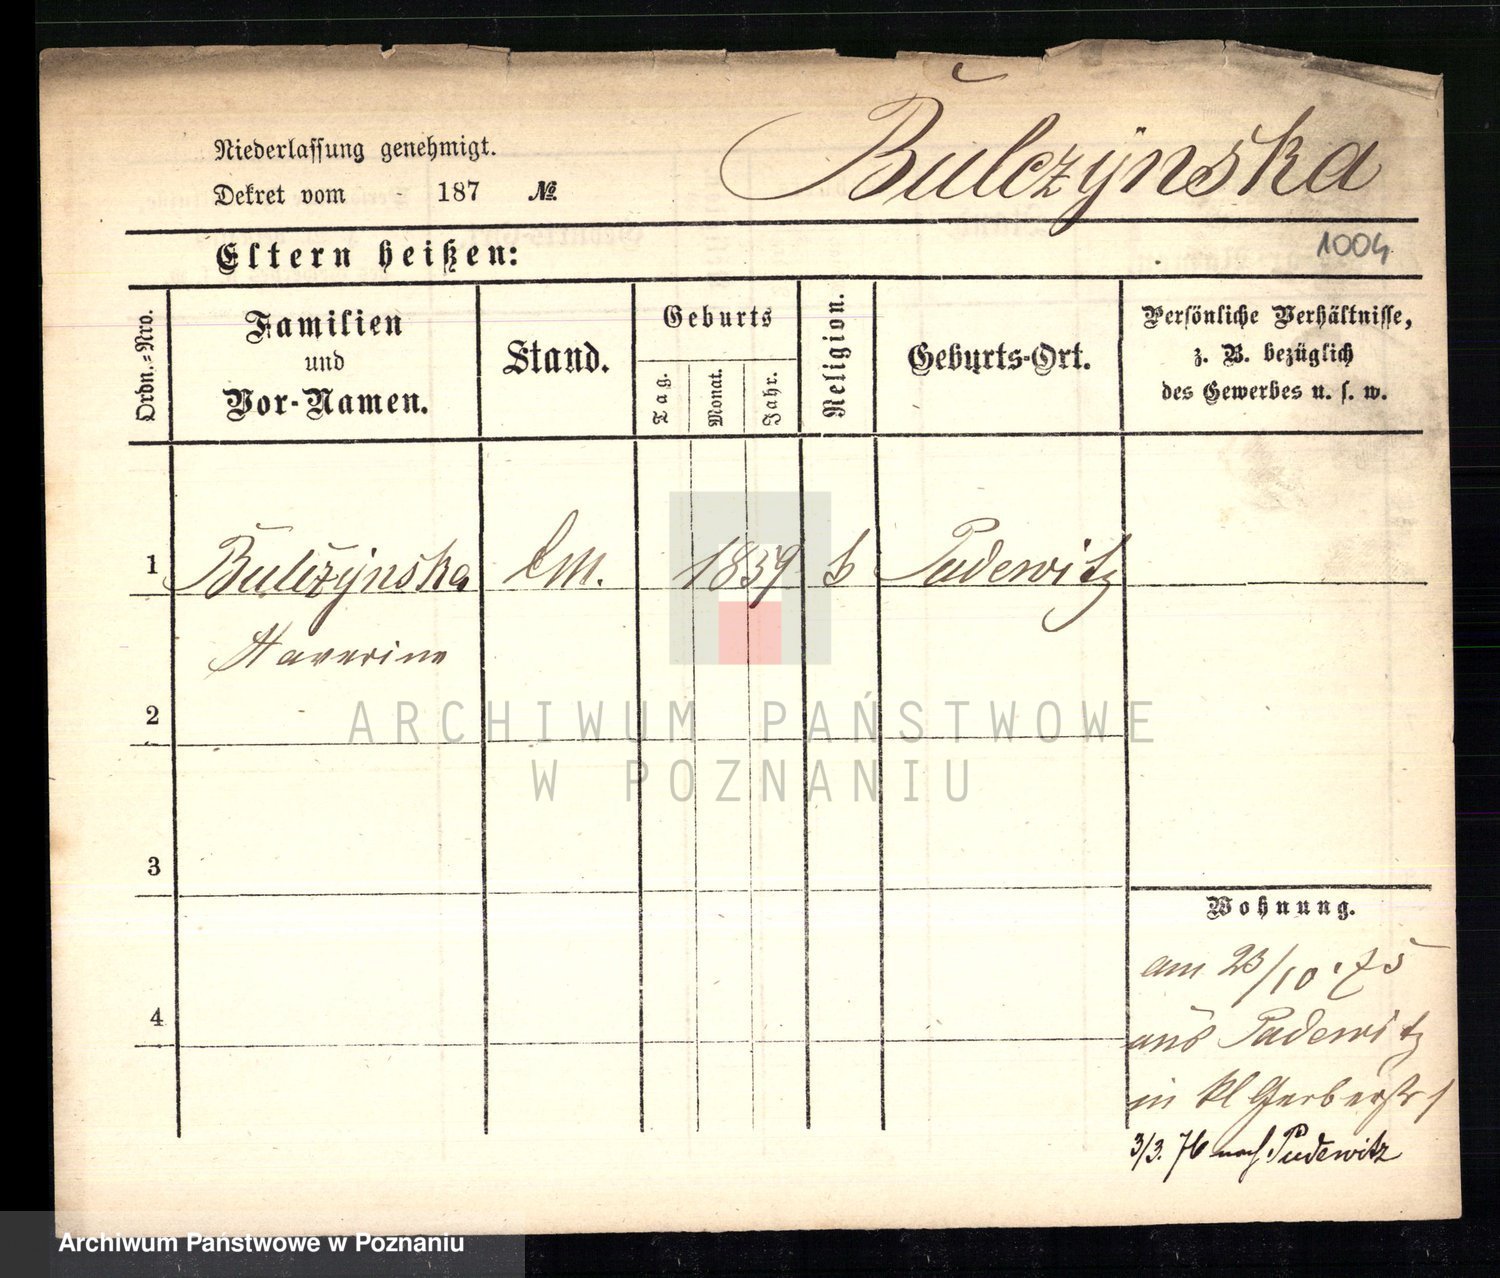 Niederlassung genehmigt.
Dekret vom 187 №
Bulczynska
1004
Eltern heißen:
Ordn.-Nro.
Familien
und
Vor-Namen.
Stand.
Geburts
Tag.
Monat.
Jahr.
Religion.
Geburts-Ort.
Persönliche Verhältnisse,
z. B. bezüglich
des Gewerbes u. s. w.
1 Bulczynska 1839 Pudewitz
2
3
4
Wohnung.
am 23/10.75
aus Pudewitz
in kl Gerberstr 1
3/3. 76 nach Pudewitz
ARCHIWUM PAŃSTWOWE
W POZNANIU
Archiwum Państwowe w Poznaniu